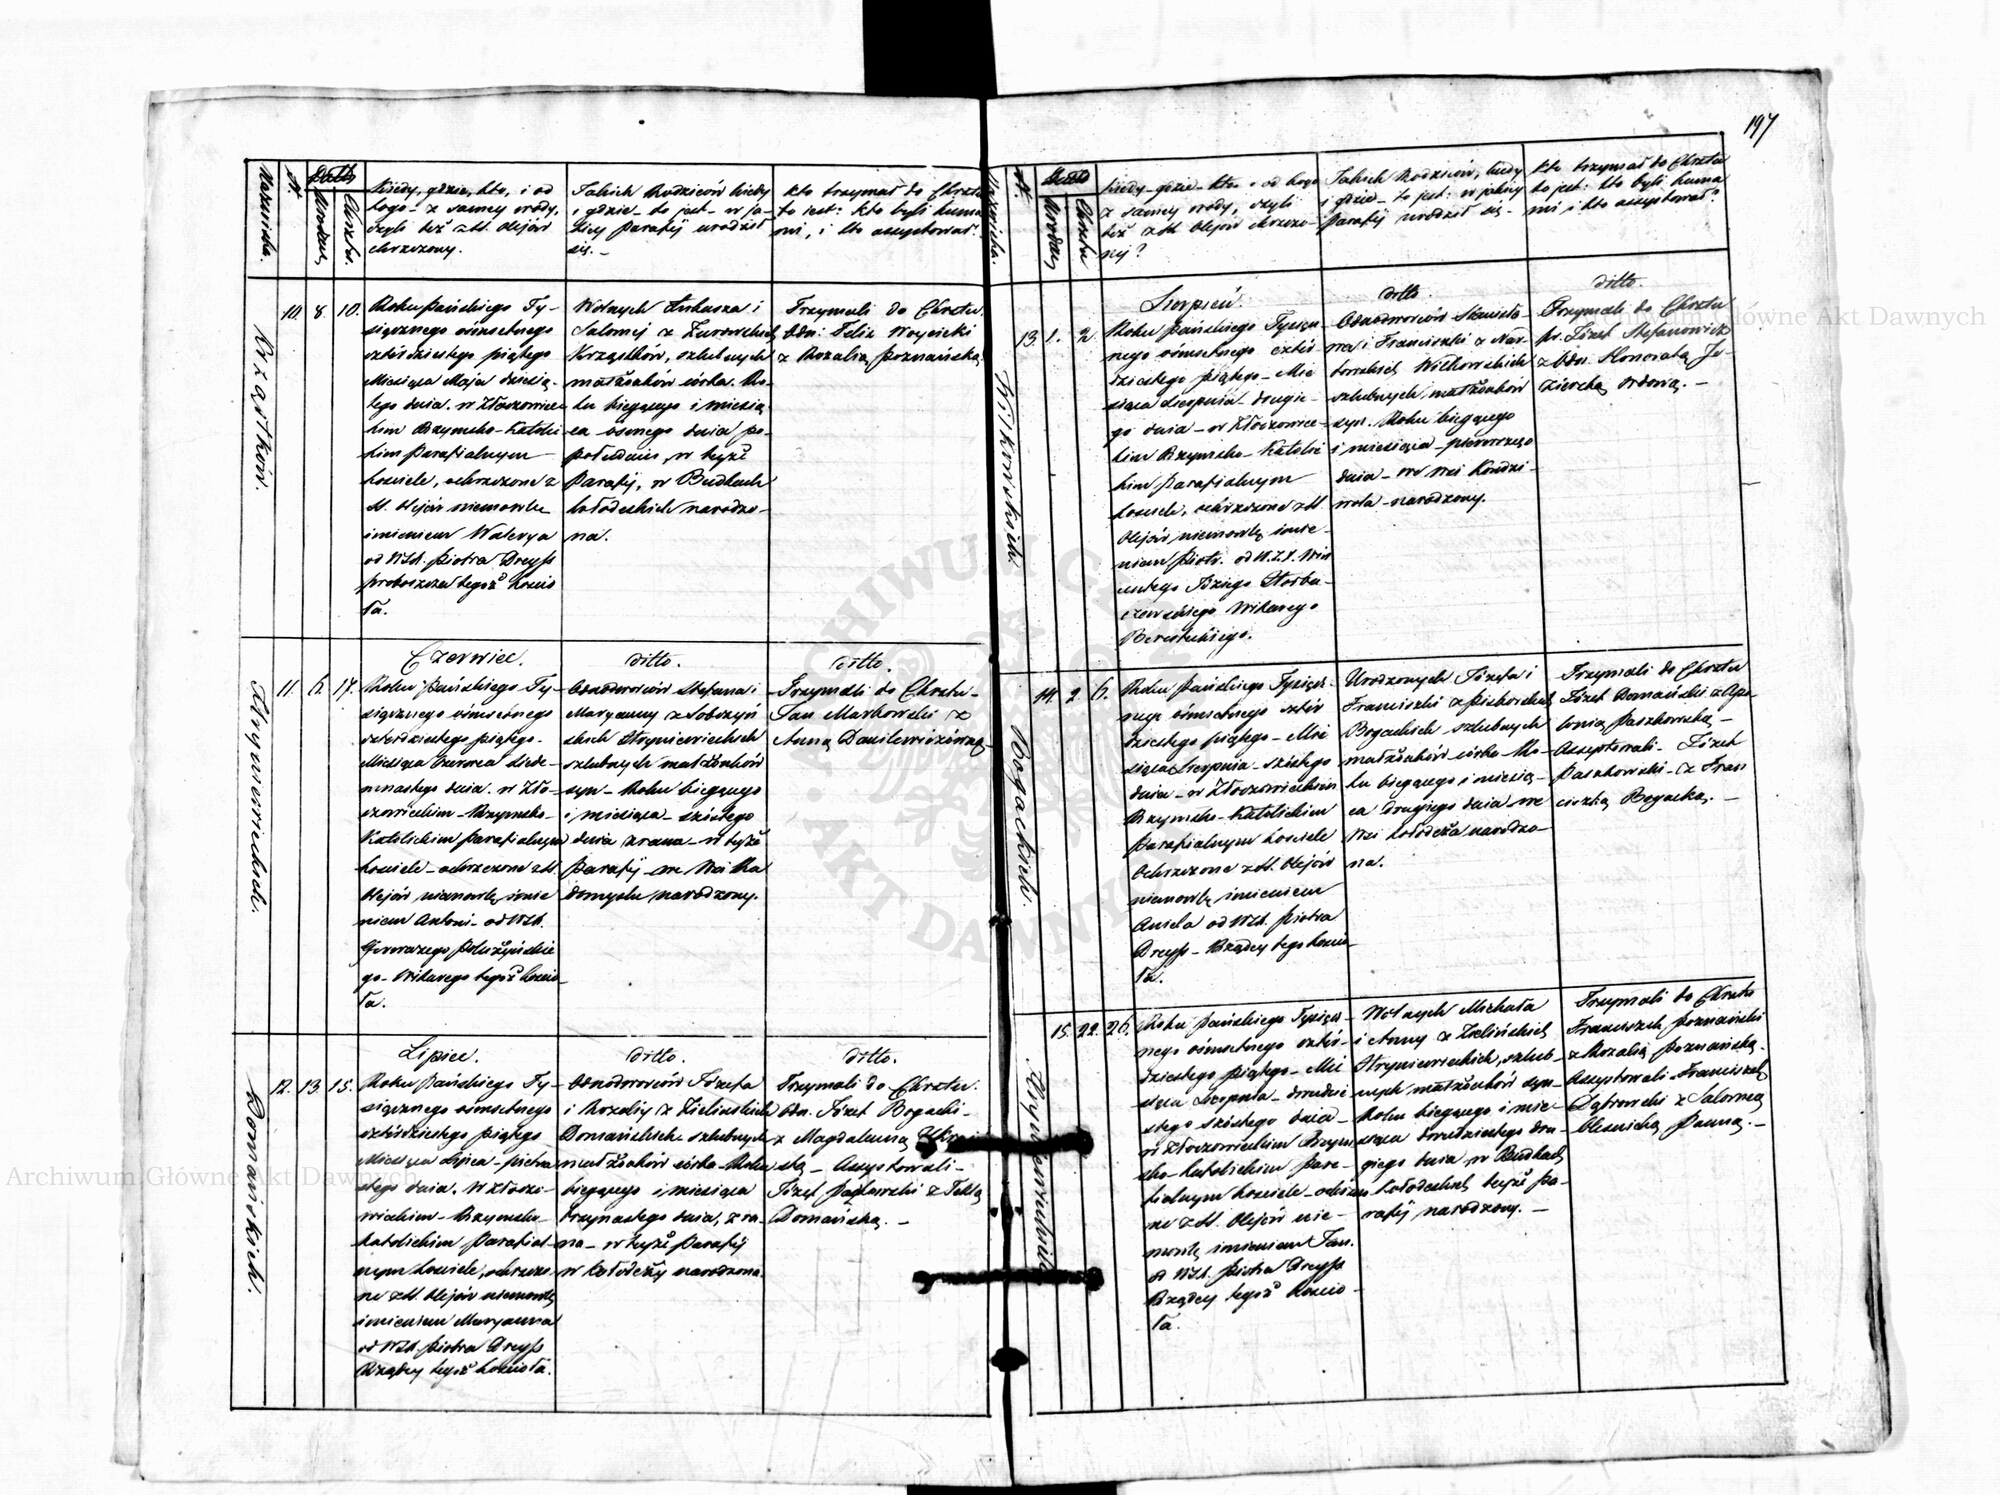 197
Nazwiska.
N.
Data
Urodzenia
Chrztu.
Kiedy, gdzie, kto, i od
kogo - z samey wody,
czyli też z SS. Olejów
chrzczony.
Jakich Rodziców kiedy
i gdzie - to jest - w ja-
kiey Parafij urodził
się. -
kto trzymał do Chrztu
to jest: kto byli kuma
mi, i kto assystował?
Krząstków.
10. 8. 10.
Roku Pańskiego Ty-
siącznego ośmsetnego
czterdziestego piątego
Miesiąca Maja dziesią-
tego dnia w Złoczowiec-
kim Rzymsko-Katolic
kim Parafialnym
kościele, ochrzczone z
SS. Olejów niemowle
imieniem Walerya
od WJX. Piotra Dreyss
proboszcza tegoż kościo
ła.
Wolnych Łukasza i
Salomej z Żurowskich
Krząstków, szlubnych
małżonków córka. Ro-
ku bieżącego i miesią
ca osmego dnia po-
południu, w teyże
Parafij, w Budkach
kołodeskich narodzo-
na.
Trzymali do Chrztu.
Odn: Felix Woycicki
z Rozalią Poznańską.
Stryiewickich.
Czerwiec.
ditto.
ditto.
11. 6. 17.
Roku Pańskiego Ty-
siącznego ośmsetnego
czterdziestego piątego.
Miesiąca Czerwca siede-
mnastego dnia w Zło-
czowieckim - Rzymsko-
Katolickim Parafialnym
kościele - ochrzczone z SS.
Olejów niemowlę imie
niem Antoni - od WJX.
go - Wikarego tegoż kościo
ła.
Odnodworców Stefana i
Maryanny z Sobczyń
skich Stryiewickich
szlubnych małżonków
syn - Roku bieżącego
i miesiąca - szóstego
dnia zrana - w teyże
Parafij - we Wsi Ra
domyślu narodzony.
Trzymali do Chrztu -
Jan Markowski z
Anną Danilewiczówną
Domańskich.
Lipiec.
ditto.
ditto.
12. 13. 15.
Roku Pańskiego Ty-
siącznego ośmsetnego
czterdziestego piątego
Miesiąca Lipca - piętna
stego dnia. W Złoczo-
wieckim - Rzymsko-
katolickim Parafial-
nym kościele, ochrzczo-
ne z SS. Olejów niemowlę
imieniem Maryanna
od WJX. Piotra Dreyss
Rządcy tegoż kościoła.
Odnodworców Józefa
i Rozalij z Zielińskich
Domańskich szlubnych
małżonków córka - Roku
bieżącego i miesiąca
trzynastego dnia, z ra-
na - w teyże Parafij
w Kołodeży narodzona.
Trzymali do Chrztu.
Odn. Józef Bogacki -
z Magdaleną
ską - Assystowali -
Józef Paszkowski z Teklą
Domańską. -
Nazwiska.
N.
Data
Urodzenia
Chrztu
Kiedy - gdzie - kto - od kogo
z samey wody, czyli
też z SS. Olejów chrzczo-
nij?
Jakich Rodziców, kiedy
i gdzie - to jest: w jakiey
Parafij urodził się. -
kto trzymał do Chrztu
to jest: kto byli kuma
mi i kto assystował?
Witkowskich.
Sierpień.
ditto.
ditto.
13. 1. 2.
Roku Pańskiego Tysiącz
nego ośmsetnego czter-
dziestego piątego - Mie
siąca Sierpnia - drugie-
go dnia - w Złoczowiec-
kim Rzymsko-Katolic
kim Parafialnym
kościele, ochrzczone z SS.
Olejów niemowlę imie-
niem Piotr. od W.J.X. Win
centego
czewskiego Wikarego
Beresteckiego.
Odnodworców Stanisła
wa i Franciszki z Nar
towskich Witkowskich
szlubnych małżonków
syn. Roku bieżącego
i miesiąca - pierwszego
dnia - we Wsi Kondzi-
wola - narodzony.
Trzymali do Chrztu
po. Józef Stefanowicz
z Odn. Honoratą Je-
zierską wdową. -
Bogackich
14. 2. 6.
Roku Pańskiego Tysiącz-
nego ośmsetnego czter
dziestego piątego - Mie
siąca Sierpnia - szóstego
dnia - w Złoczowieckim
Rzymsko-Katolickim
Parafialnym kościele
Ochrzczone z SS. Olejów
niemowlę imieniem
Aniela od WJX. Piotra
Dreyss - Rządcy tego kościo-
ła.
Urodzonych Józefa i
Franciszki z Piskorskich
Bogackich szlubnych
małżonków córka - Ro-
ku bieżącego i miesią-
ca Drugiego dnia we
Wsi Kołodeża narodzo-
na.
Trzymali do Chrztu
Józef Domański z Apo-
lonią Paszkowską -
Assystowali - Józef
Paszkowski - z Fran
ciszką Bogacką. -
Stryiewickich
15. 22. 26.
Roku Pańskiego Tysiącz-
nego ośmsetnego czter-
dziestego piątego - Mie
siąca Sierpnia - dwudzie
stego szóstego dnia -
w Złoczowieckim Rzym
sko-Katolickim Para-
fialnym kościele - ochrzczo
ne z SS. Olejów nie-
mowlę imieniem Jan.
od WJX. Piotra Dreyss
Rządcy tegoż kościo-
ła.
Wolnych Michała
i Anny z Zielińskich
Stryiewickich, szlub-
nych małżonków syn -
Roku bieżącego i mie-
siąca dwudziestego dru-
giego dnia w Budkach
kołodeskich teyże pa-
rafij narodzony. -
Trzymali do Chrztu
Franciszek Poznański
z Rozalią Poznańską.
Assystowali - Franciszek
Dąbrowski z Salomeą
Oleśnicką Panną. -
Archiwum Główne Akt Dawnych
Archiwum Główne Akt Dawnych
ARCHIWUM GŁÓWNE
AKT DAWNYCH